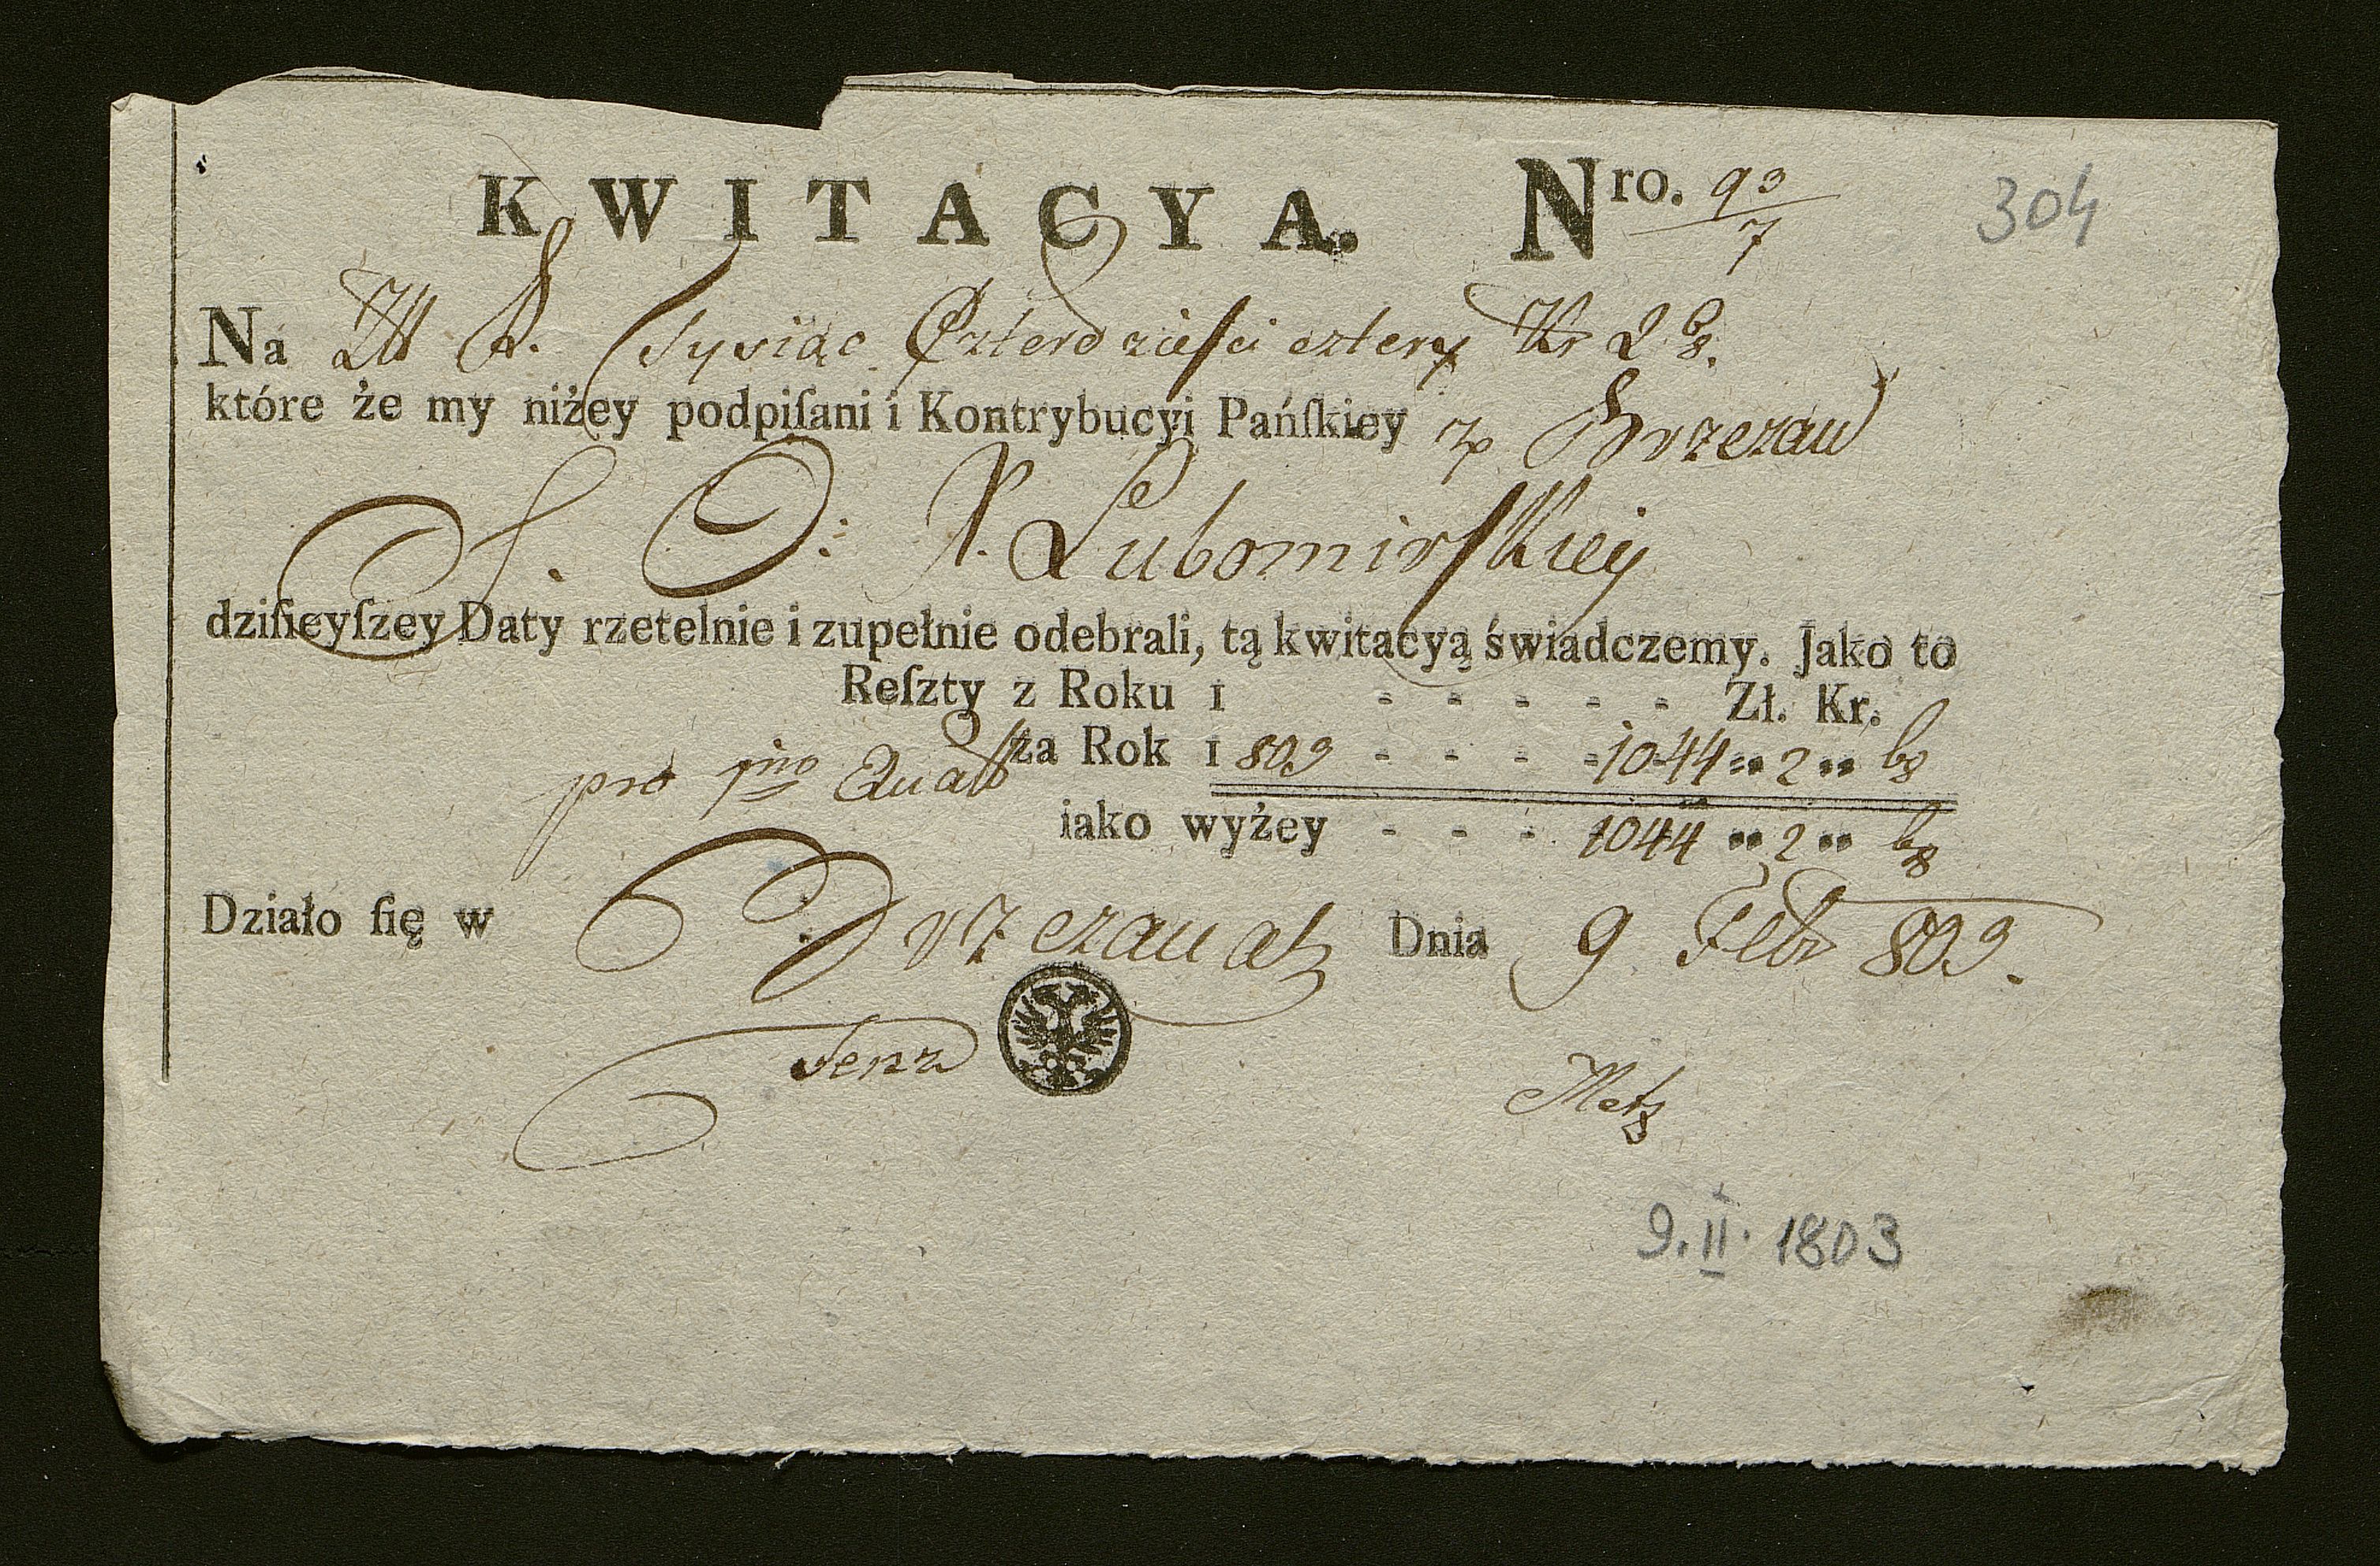 KWITACYA. Nro. 93/7 304
Na Zł R. Tysiąc Czterdzieſci cztery Kr 2 6/8.
które że my niżey podpiſani i Kontrybucyi Pańſkiey z Brzezan
J. O: X. Lubomirſkiey
dziſieyſzey Daty rzetelnie i zupełnie odebrali, tą kwitacyą świadczemy. Jako to
Reſzty z Roku 1 - - - - - Zł. Kr.
pro 1mo Quart za Rok 1803 - - - - 1044 " 2 " 6/8
iako wyżey - - - 1044 " 2 " 6/8
Działo ſię w Dnia 9 Febr 803.
Metz
9. II. 1803